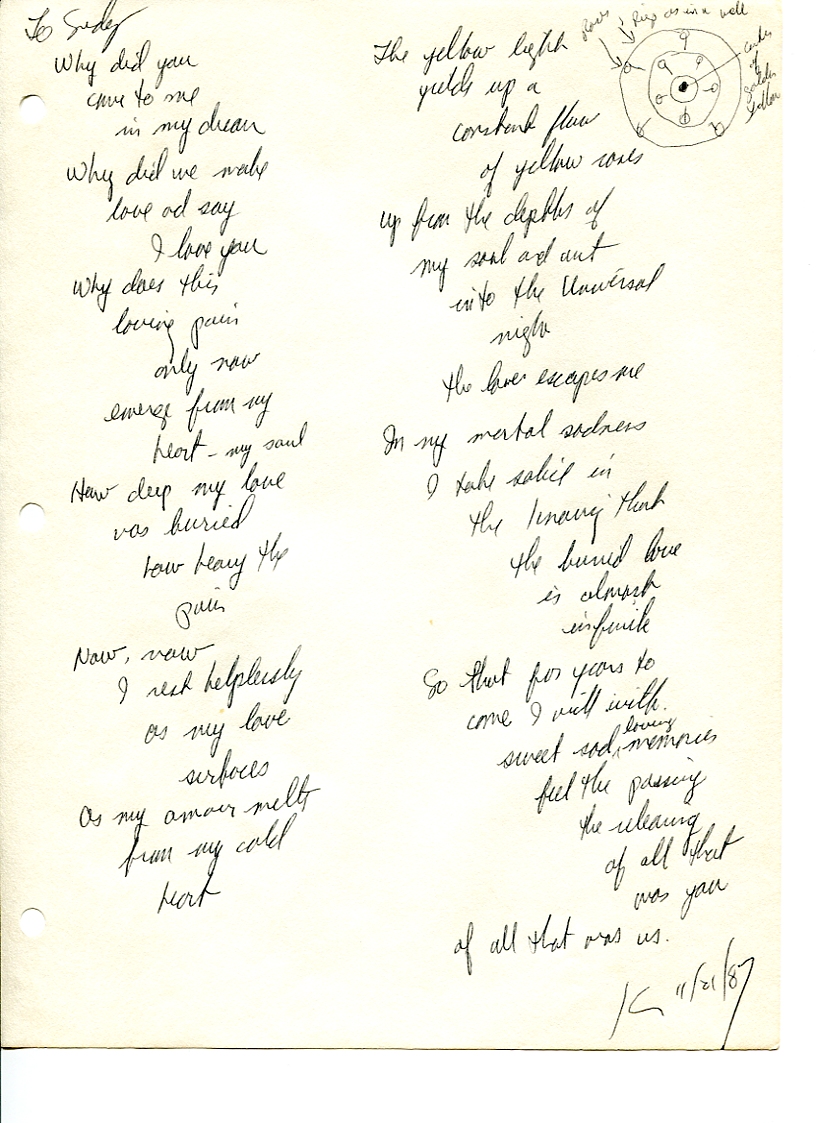 To
Why did you
come to me
in my dream
Why did we make
love and say
I love you
Why does this
loving pain
only now
emerge from my
heart - my soul
How deep my love
was buried
how heavy the
pain
Now, now
I rest helplessly
as my love
surfaces
As my armour melts
from my cold
heart
The yellow light
yields up a
constant flow
of yellow roses
up from the depths of
my soul and out
into the Universal
night
the love escapes me
In my mortal sadness
I take solice in
the knowing that
the buried love
is almost
infinite
So that for years to
come I will with
sweet sad, loving memories
feel the passing
the releasing
of all that
was you
of all that was us.
K 11/21/87
roses
Rings as in a well
center
of
golden
yellow